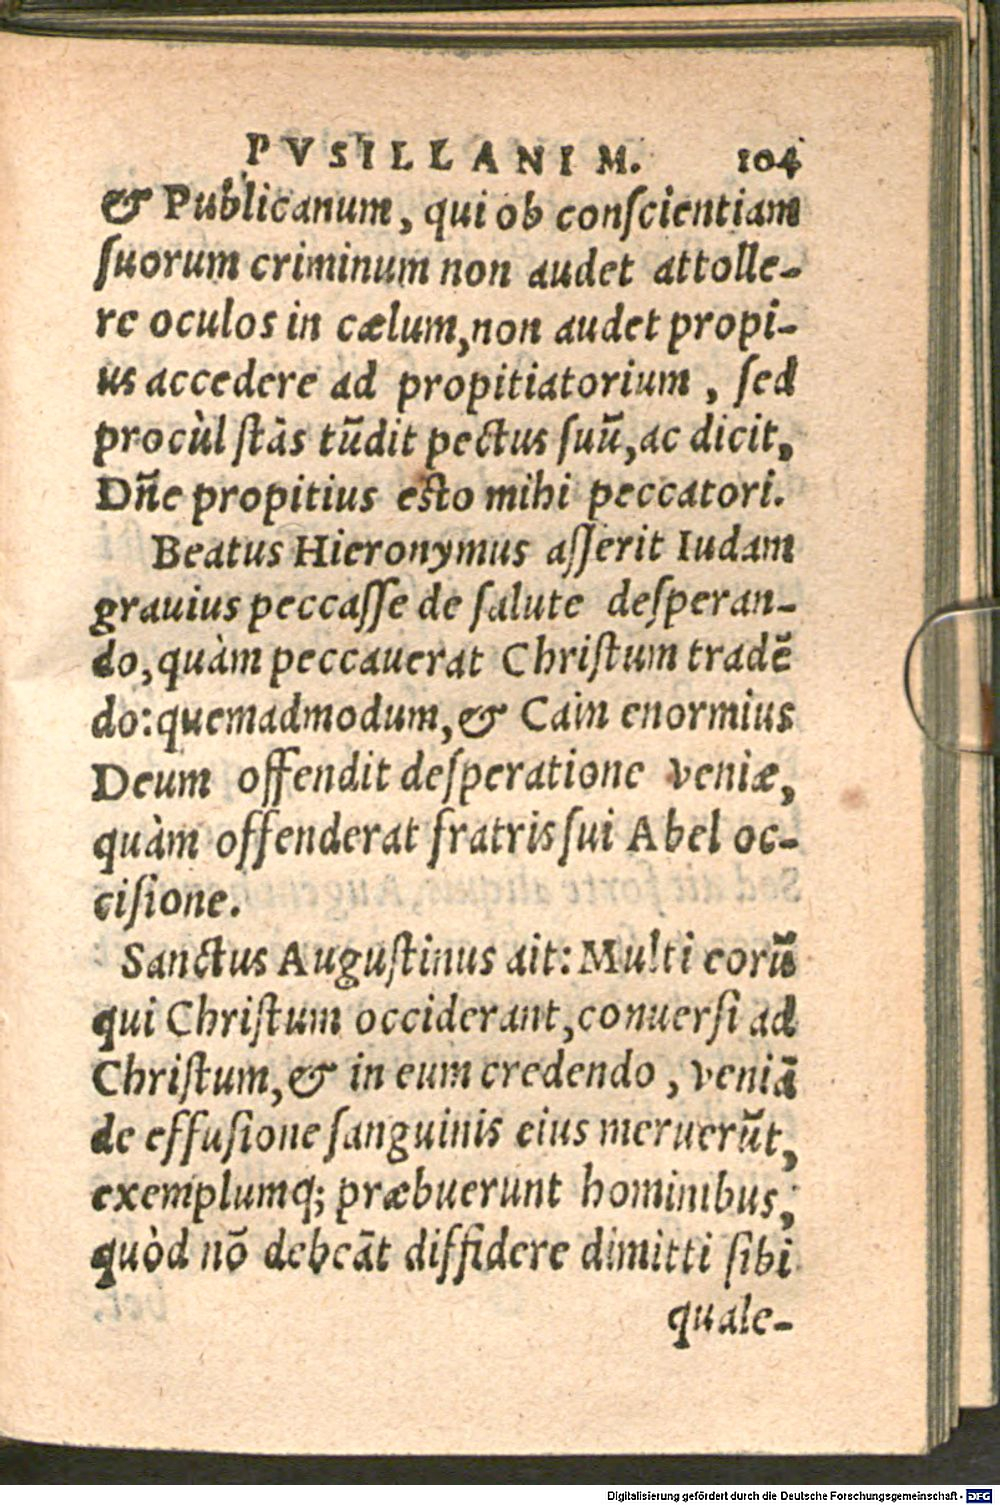 PVSILLANIM. 104
& Publicanum, qui ob conſcientiam
ſuorum criminum non audet attolle-
re oculos in cælum, non audet propi-
us accedere ad propitiatorium, ſed
procùl ſtãs tũdit pectus ſuũ, ac dicit,
Dñe propitius eſto mihi peccatori.
Beatus Hieronymus aſſerit Iudam
grauius peccaſſe de ſalute deſperan-
do, quàm peccauerat Chriſtum tradẽ
do: quemadmodum, & Cain enormius
Deum offendit deſperatione veniæ,
quàm offenderat fratris ſui Abel oc-
ciſione.
Sanctus Auguſtinus ait: Multi eorũ
qui Chriſtum occiderant, conuerſi ad
Chriſtum, & in eum credendo, veniã
de effuſione ſanguinis eius meruerũt,
exemplumq; præbuerunt hominibus,
quòd nõ debeãt diffidere dimitti ſibi
quale-
Digitalisierung gefördert durch die Deutsche Forschungsgemeinschaft - DFG